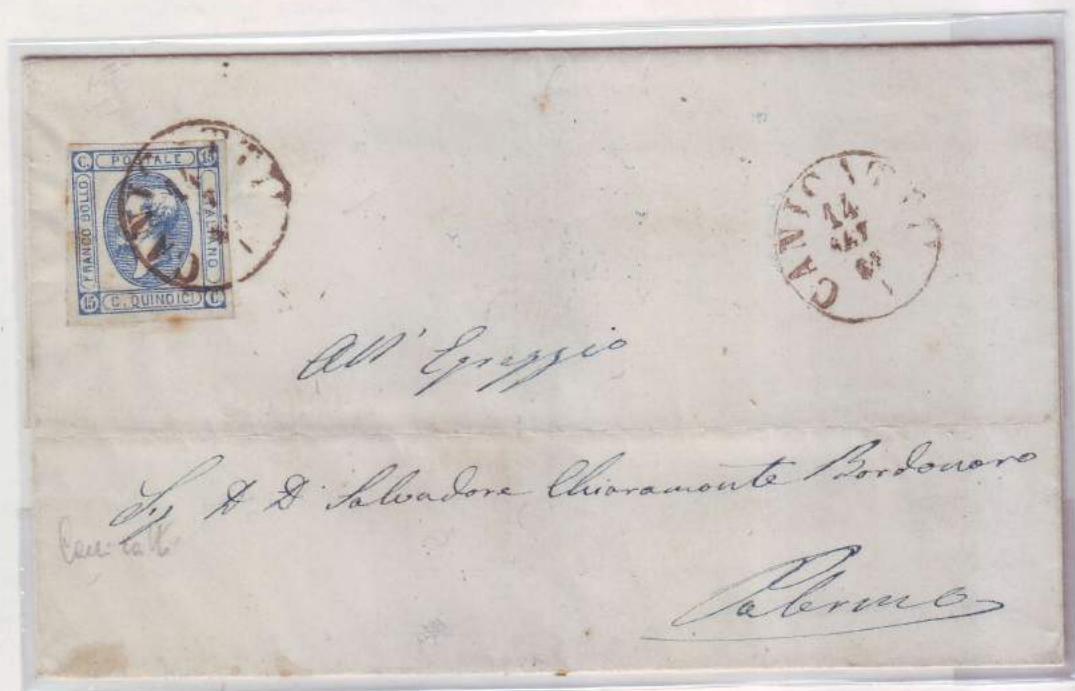 C. POSTALE 15
FRANCO BOLLO
ITALIANO
15 C. QUINDICI C.
CANICATTI
14
All' Egreggio
Sig D D Salvadore Chiaramonte Bordonaro
Palermo